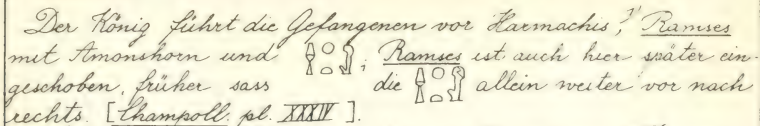 Der König führt die Gefangenen vor Harmachis, 1) Ramses
mit Amonshorn und ; Ramses ist auch hier später ein-
geschoben, früher sass die allein weiter vor nach
rechts. [Champoll. pl. XXXIV ].